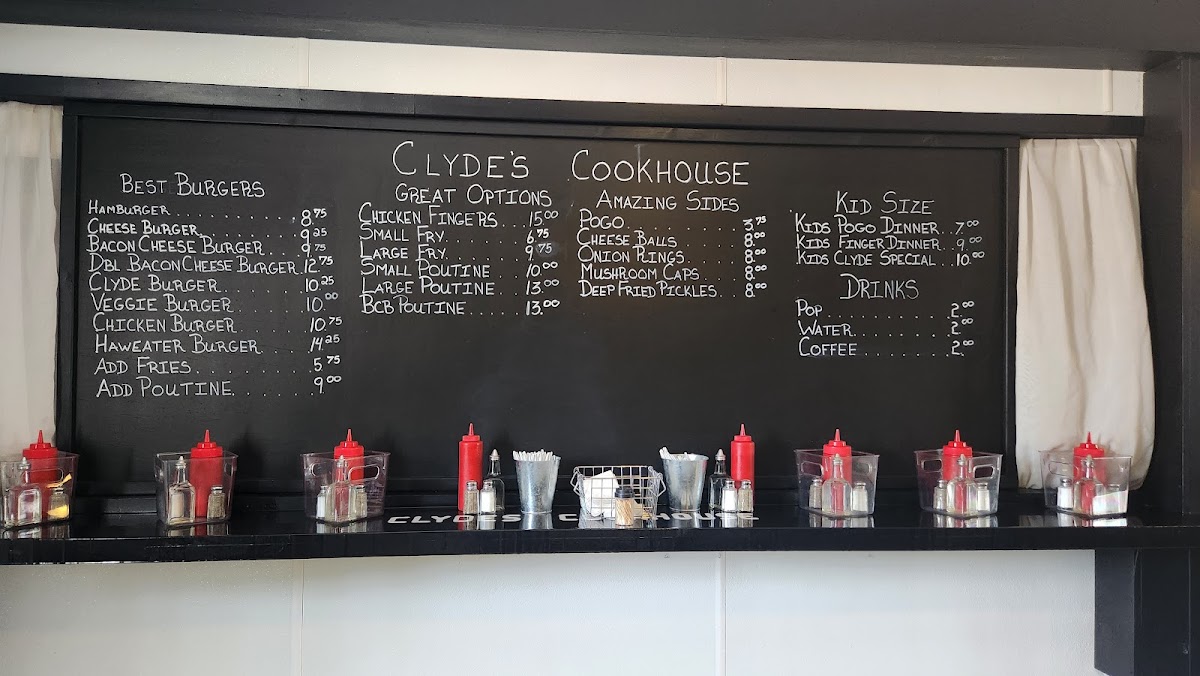 CLYDE'S COOKHOUSE
BEST BURGERS
HAMBURGER . . . . . . . . . . . 8.75
CHEESE BURGER . . . . . . . . . 9.25
BACON CHEESE BURGER . . . . 9.75
DBL BACON CHEESE BURGER . 12.75
CLYDE BURGER . . . . . . . . 10.25
VEGGIE BURGER . . . . . . . 10.00
CHICKEN BURGER . . . . . . . 10.75
HAWEATER BURGER . . . . . 14.25
ADD FRIES . . . . . . . . . . . 5.75
ADD POUTINE . . . . . . . 9.00
GREAT OPTIONS
CHICKEN FINGERS . . . 15.00
SMALL FRY . . . . . . . . 6.75
LARGE FRY . . . . . . . . 9.75
SMALL POUTINE . . . . 10.00
LARGE POUTINE . . . . 13.00
BCB POUTINE . . . . . . 13.00
AMAZING SIDES
POGO . . . . . . . . . . . . 3.75
CHEESE BALLS . . . . . . . 8.00
ONION RINGS . . . . . . 8.00
MUSHROOM CAPS . . . . . 8.00
DEEP FRIED PICKLES . . . 8.00
KID SIZE
KIDS POGO DINNER . . 7.00
KIDS FINGER DINNER . . 9.00
KIDS CLYDE SPECIAL . . 10.00
DRINKS
POP . . . . . . . . . . . 2.00
WATER . . . . . . . . . 2.00
COFFEE . . . . . . . . 2.00
CLYDES COOKHOUSE